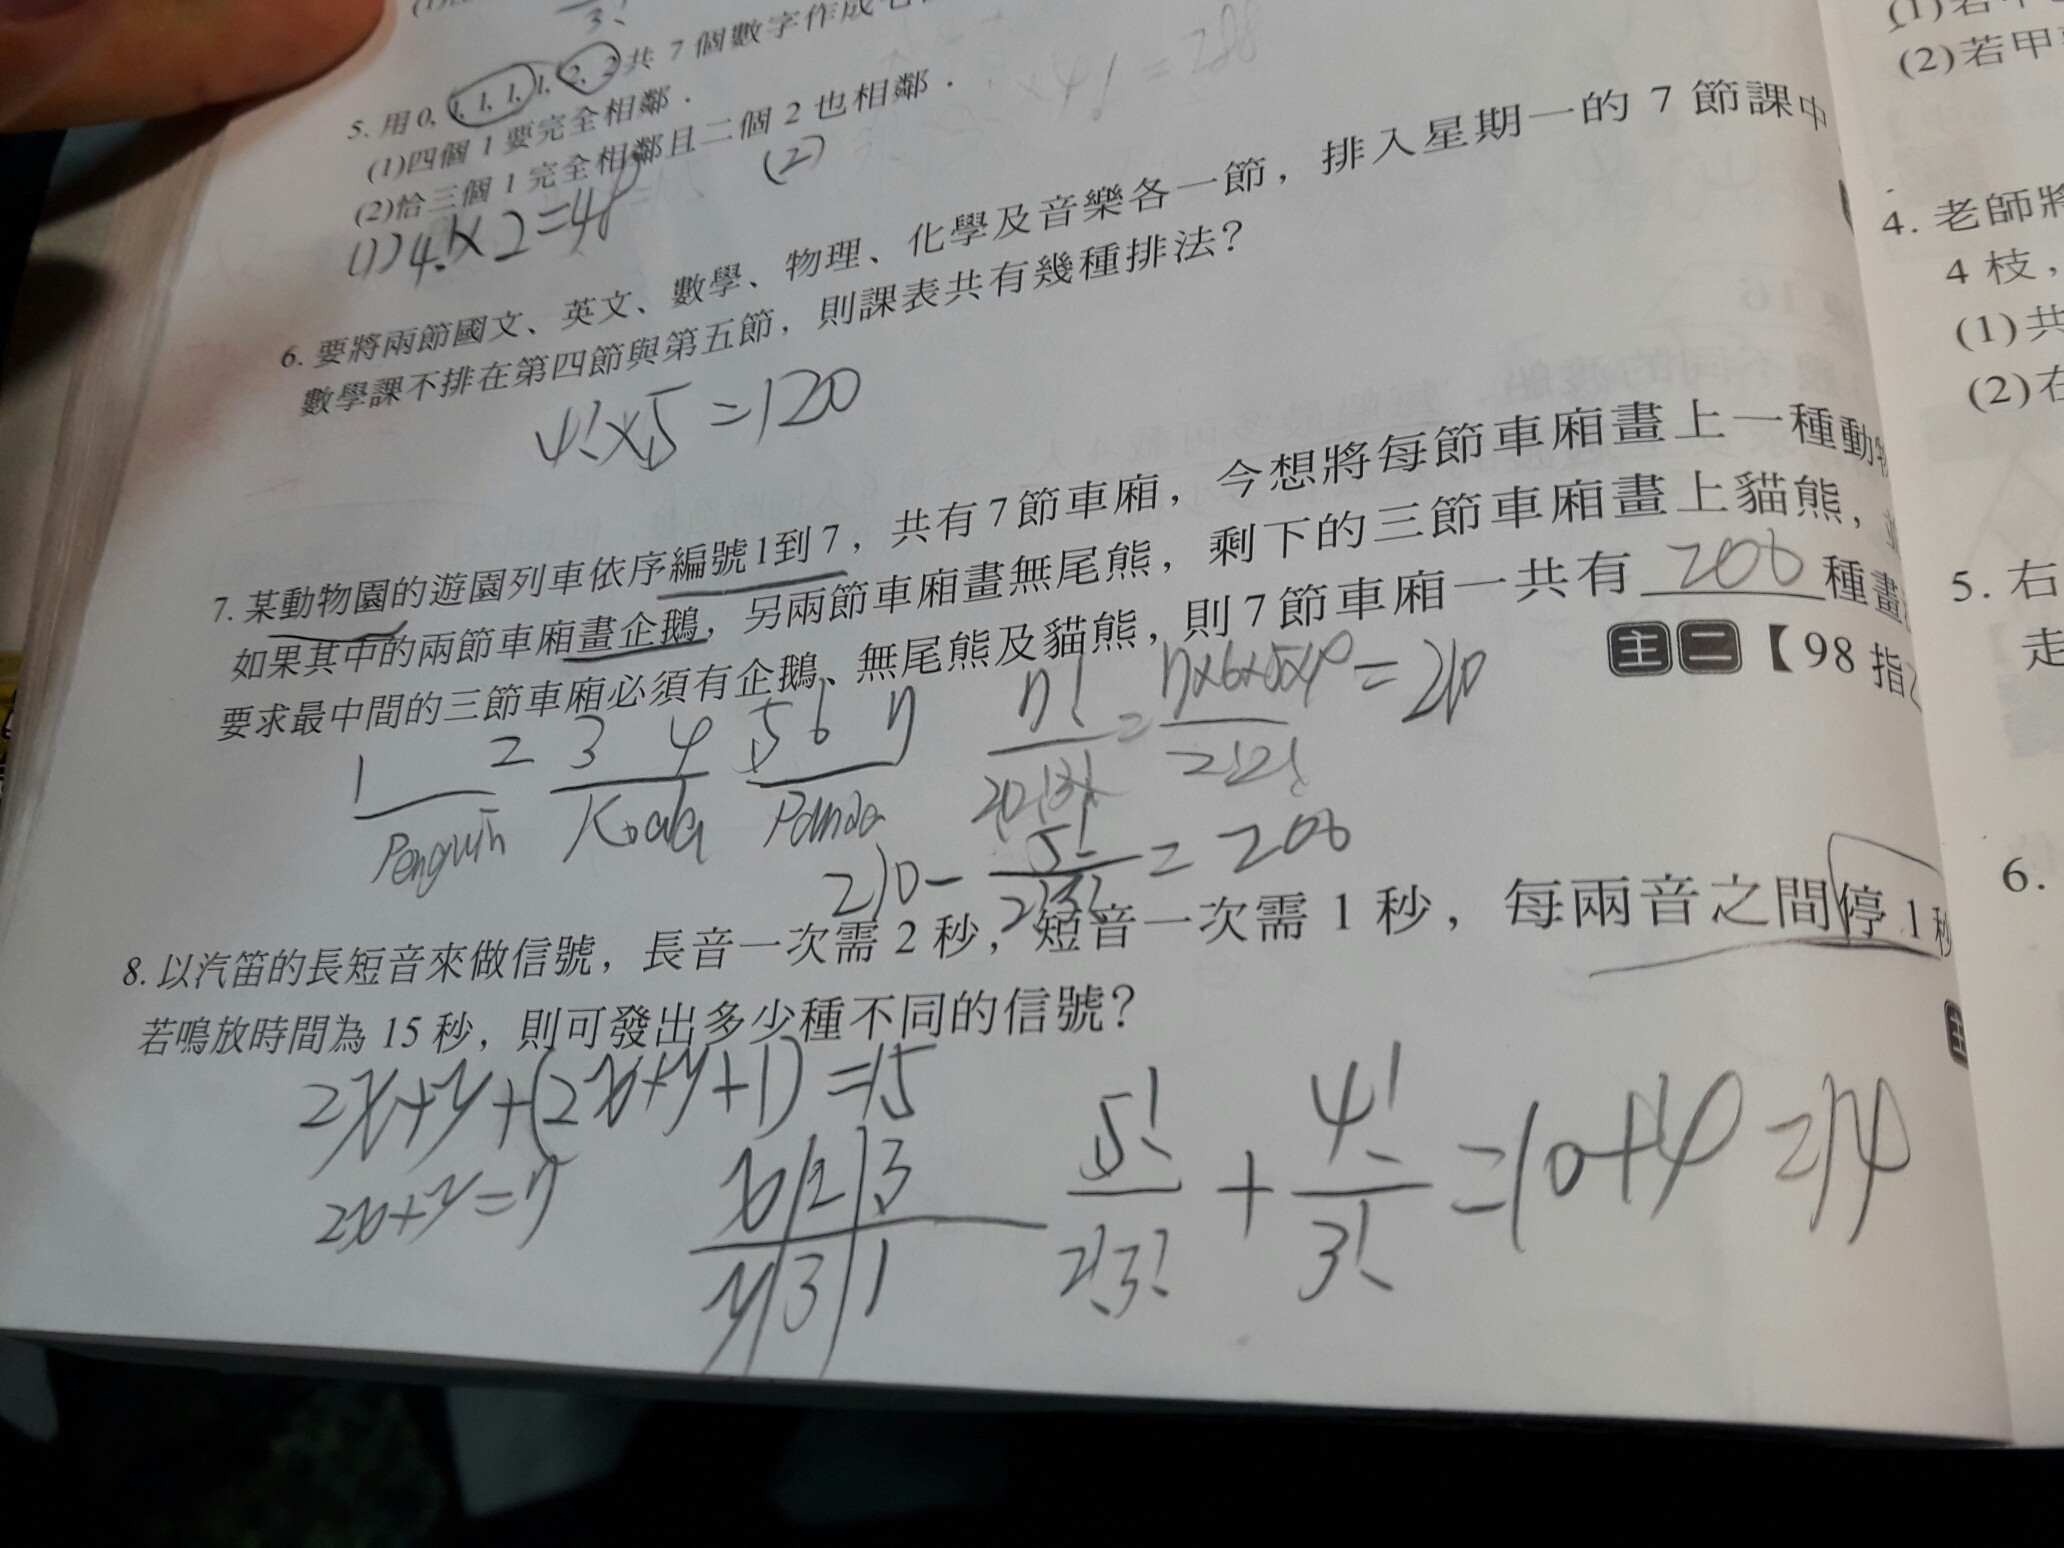 3!
5. 用 0, 1, 1, 1, 1, 2, 2 共 7 個數字作成
(1)四個 1 要完全相鄰.
(2)恰三個 1 完全相鄰且二個 2 也相鄰.
(1) 4!×2=48
(2)
×4!=288
6. 要將兩節國文、英文、數學、物理、化學及音樂各一節，排入星期一的 7 節課中
數學課不排在第四節與第五節，則課表共有幾種排法？
4!×5=120
7. 某動物園的遊園列車依序編號1到7，共有7節車廂，今想將每節車廂畫上一種動物
如果其中的兩節車廂畫企鵝，另兩節車廂畫無尾熊，剩下的三節車廂畫上貓熊，並
要求最中間的三節車廂必須有企鵝、無尾熊及貓熊，則7節車廂一共有 206 種畫
主 二 【98 指
1 2 3 4 5 6 7
Penguin Koala Panda
7!/2!2!3! = 7×6×5×4/2!2! = 210
210 - 5!/2!3! = 206
8. 以汽笛的長短音來做信號，長音一次需 2 秒，短音一次需 1 秒，每兩音之間停 1 秒
若鳴放時間為 15 秒，則可發出多少種不同的信號？
2x+y+(2x+y+1)=15
2x+y=7
x 2 3
y 3 1
5!/2!3! + 4!/3! =10+4=14
(1)若
(2)若甲
4. 老師將
4 枝，
(1)共
(2)在
5. 右
走
6.